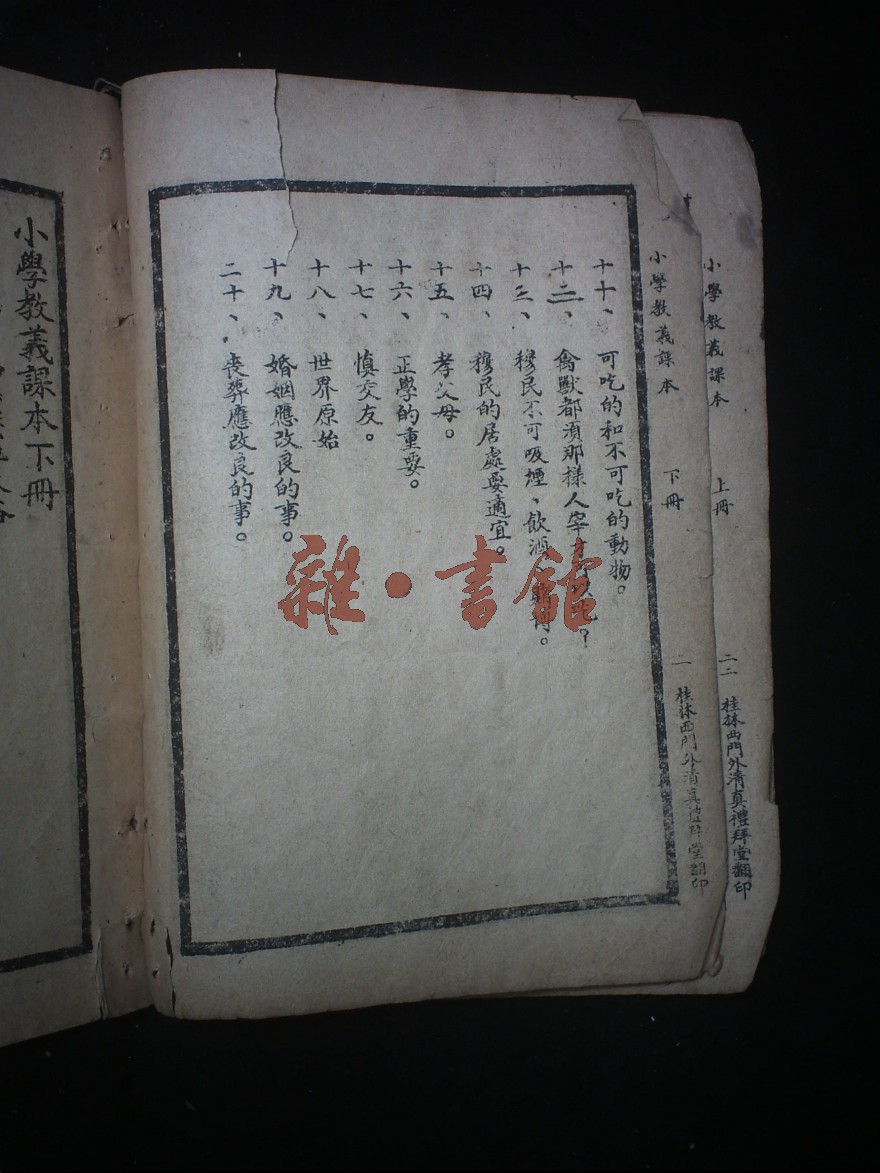 小學教義課本 上冊 二二 桂林西門外清真禮拜堂翻印
小學教義課本 下冊 一 桂林西門外清真禮拜堂翻印
十十、可吃的和不可吃的動物。
十二、禽獸都須那樣人宰才可以吃？
十三、穆民不可吸煙、飲酒、賭博。
十四、穆民的居處要適宜。
十五、孝父母。
十六、正學的重要。
十七、慎交友。
十八、世界原始
十九、婚姻應改良的事。
二十、喪葬應改良的事。
小學教義課本下冊
雜·書館